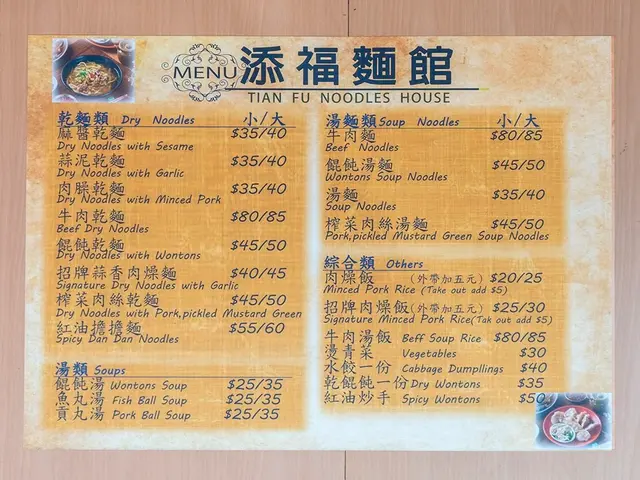 MENU 添福麵館
TIAN FU NOODLES HOUSE
乾麵類 Dry Noodles 小/大
麻醬乾麵 $35/40
Dry Noodles with Sesame
蒜泥乾麵 $35/40
Dry Noodles with Garlic
肉臊乾麵 $35/40
Dry Noodles with Minced Pork
牛肉乾麵 $80/85
Beef Dry Noodles
餛飩乾麵 $45/50
Dry Noodles with Wontons
招牌蒜香肉燥麵 $40/45
Signature Dry Noodles with Garlic
榨菜肉絲乾麵 $45/50
Dry Noodles with Pork,pickled Mustard Green
紅油擔擔麵 $55/60
Spicy Dan Dan Noodles
湯類 Soups
餛飩湯 Wontons Soup $25/35
魚丸湯 Fish Ball Soup $25/35
貢丸湯 Pork Ball Soup $25/35
湯麵類 Soup Noodles 小/大
牛肉麵 $80/85
Beef Noodles
餛飩湯麵 $45/50
Wontons Soup Noodles
湯麵 $35/40
Soup Noodles
榨菜肉絲湯麵 $45/50
Pork,pickled Mustard Green Soup Noodles
綜合類 Others
肉燥飯 (外帶加五元) $20/25
Minced Pork Rice (Take out add $5)
招牌肉燥飯(外帶加五元) $25/30
Signature Minced Pork Rice(Tak out add $5)
牛肉湯飯 Beff Soup Rice $80/85
燙青菜 Vegetables $30
水餃一份 Cabbage Dumpllings $40
乾餛飩一份 Dry Wontons $35
紅油炒手 Spicy Wontons $50